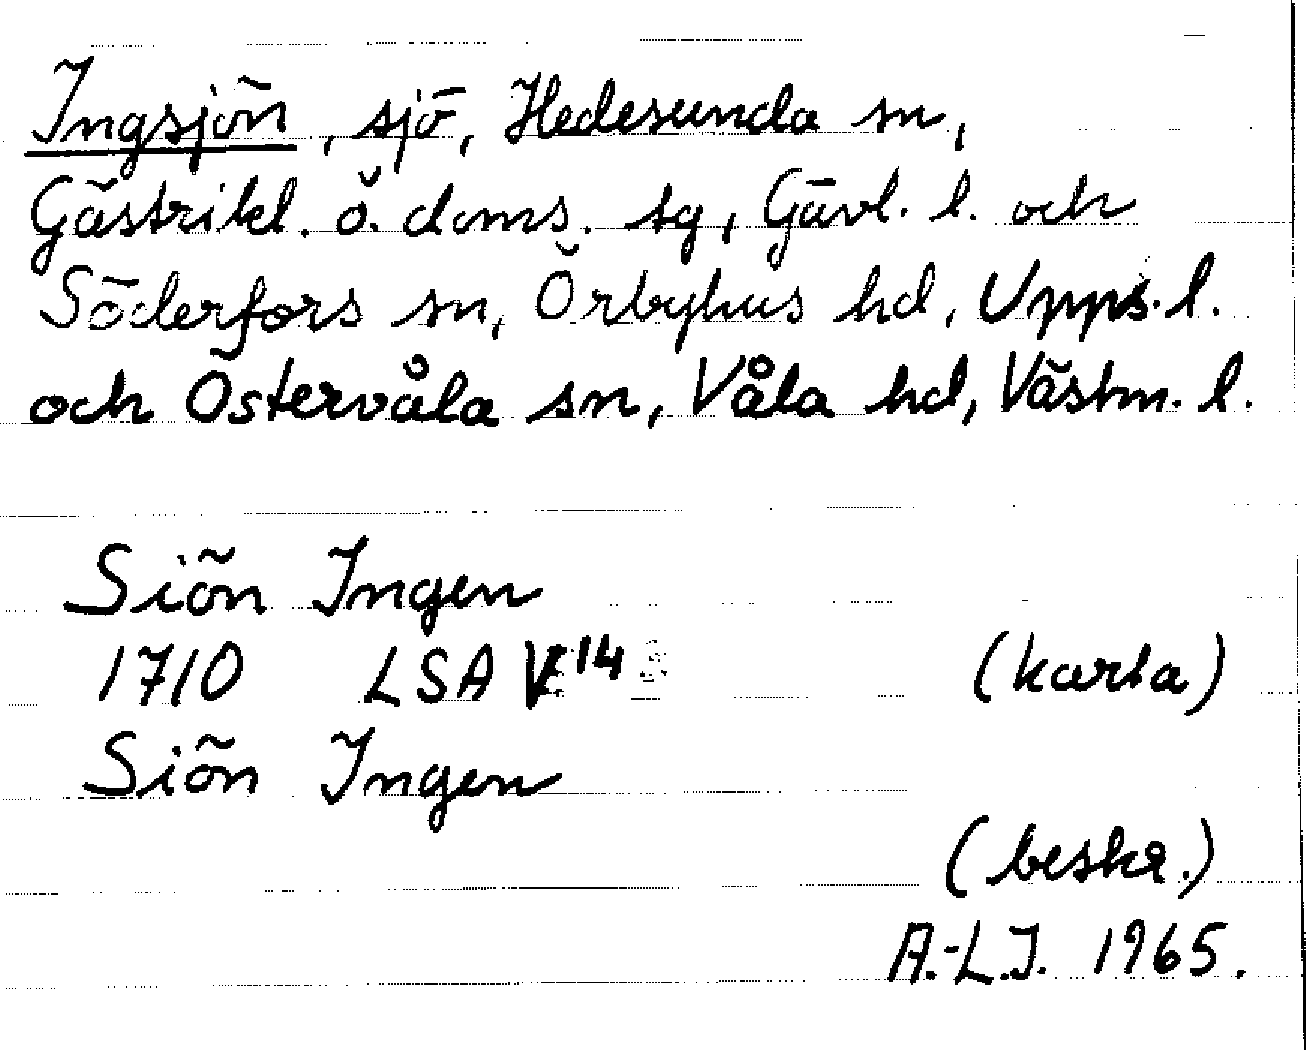 Ingsjön, sjö, Hedesunda sn,
Gästrikl. ö. doms. tg, Gävl. l. och
Söderfors sn, Örbyhus hd, Upps. l.
och Östervåla sn, Våla hd, Västm. l.
Siön Ingen
1710 LSA V 14 (karta)
Siön Ingen
(beskr.)
A.-L.J. 1965.